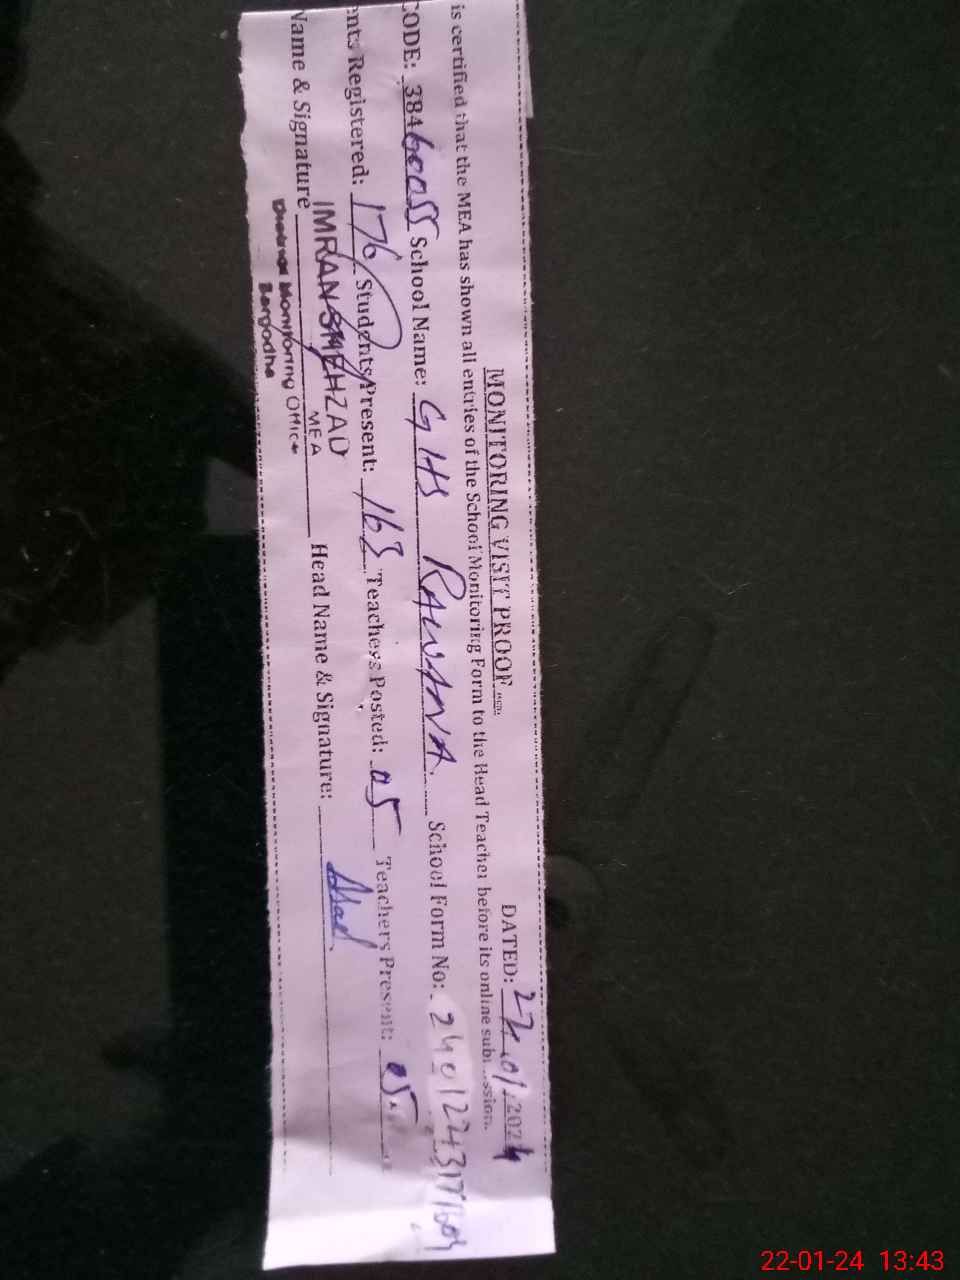 MONITORING VISIT PROOF
DATED: 22.01.2024
is certified that the MEA has shown all entries of the School Monitoring Form to the Head Teacher before its online
CODE: 38460055 School Name: GHS RAWANA. School Form No:
ents Registered: 176 Students Present: 163 Teachers Posted: 05 Teachers Present: 05
Name & Signature IMRAN SHEHZAD Head Name & Signature:
MEA
Monitoring Office
22-01-24 13:43